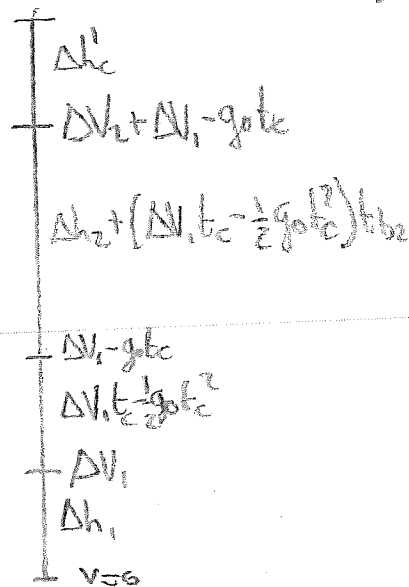 Δh'c
ΔV₂+ΔV₁-g₀tc
Δh₂+(ΔV₁tc-½g₀tc²)tb₂
ΔV₁-g₀tc
ΔV₁tc-½g₀tc²
ΔV₁
Δh₁